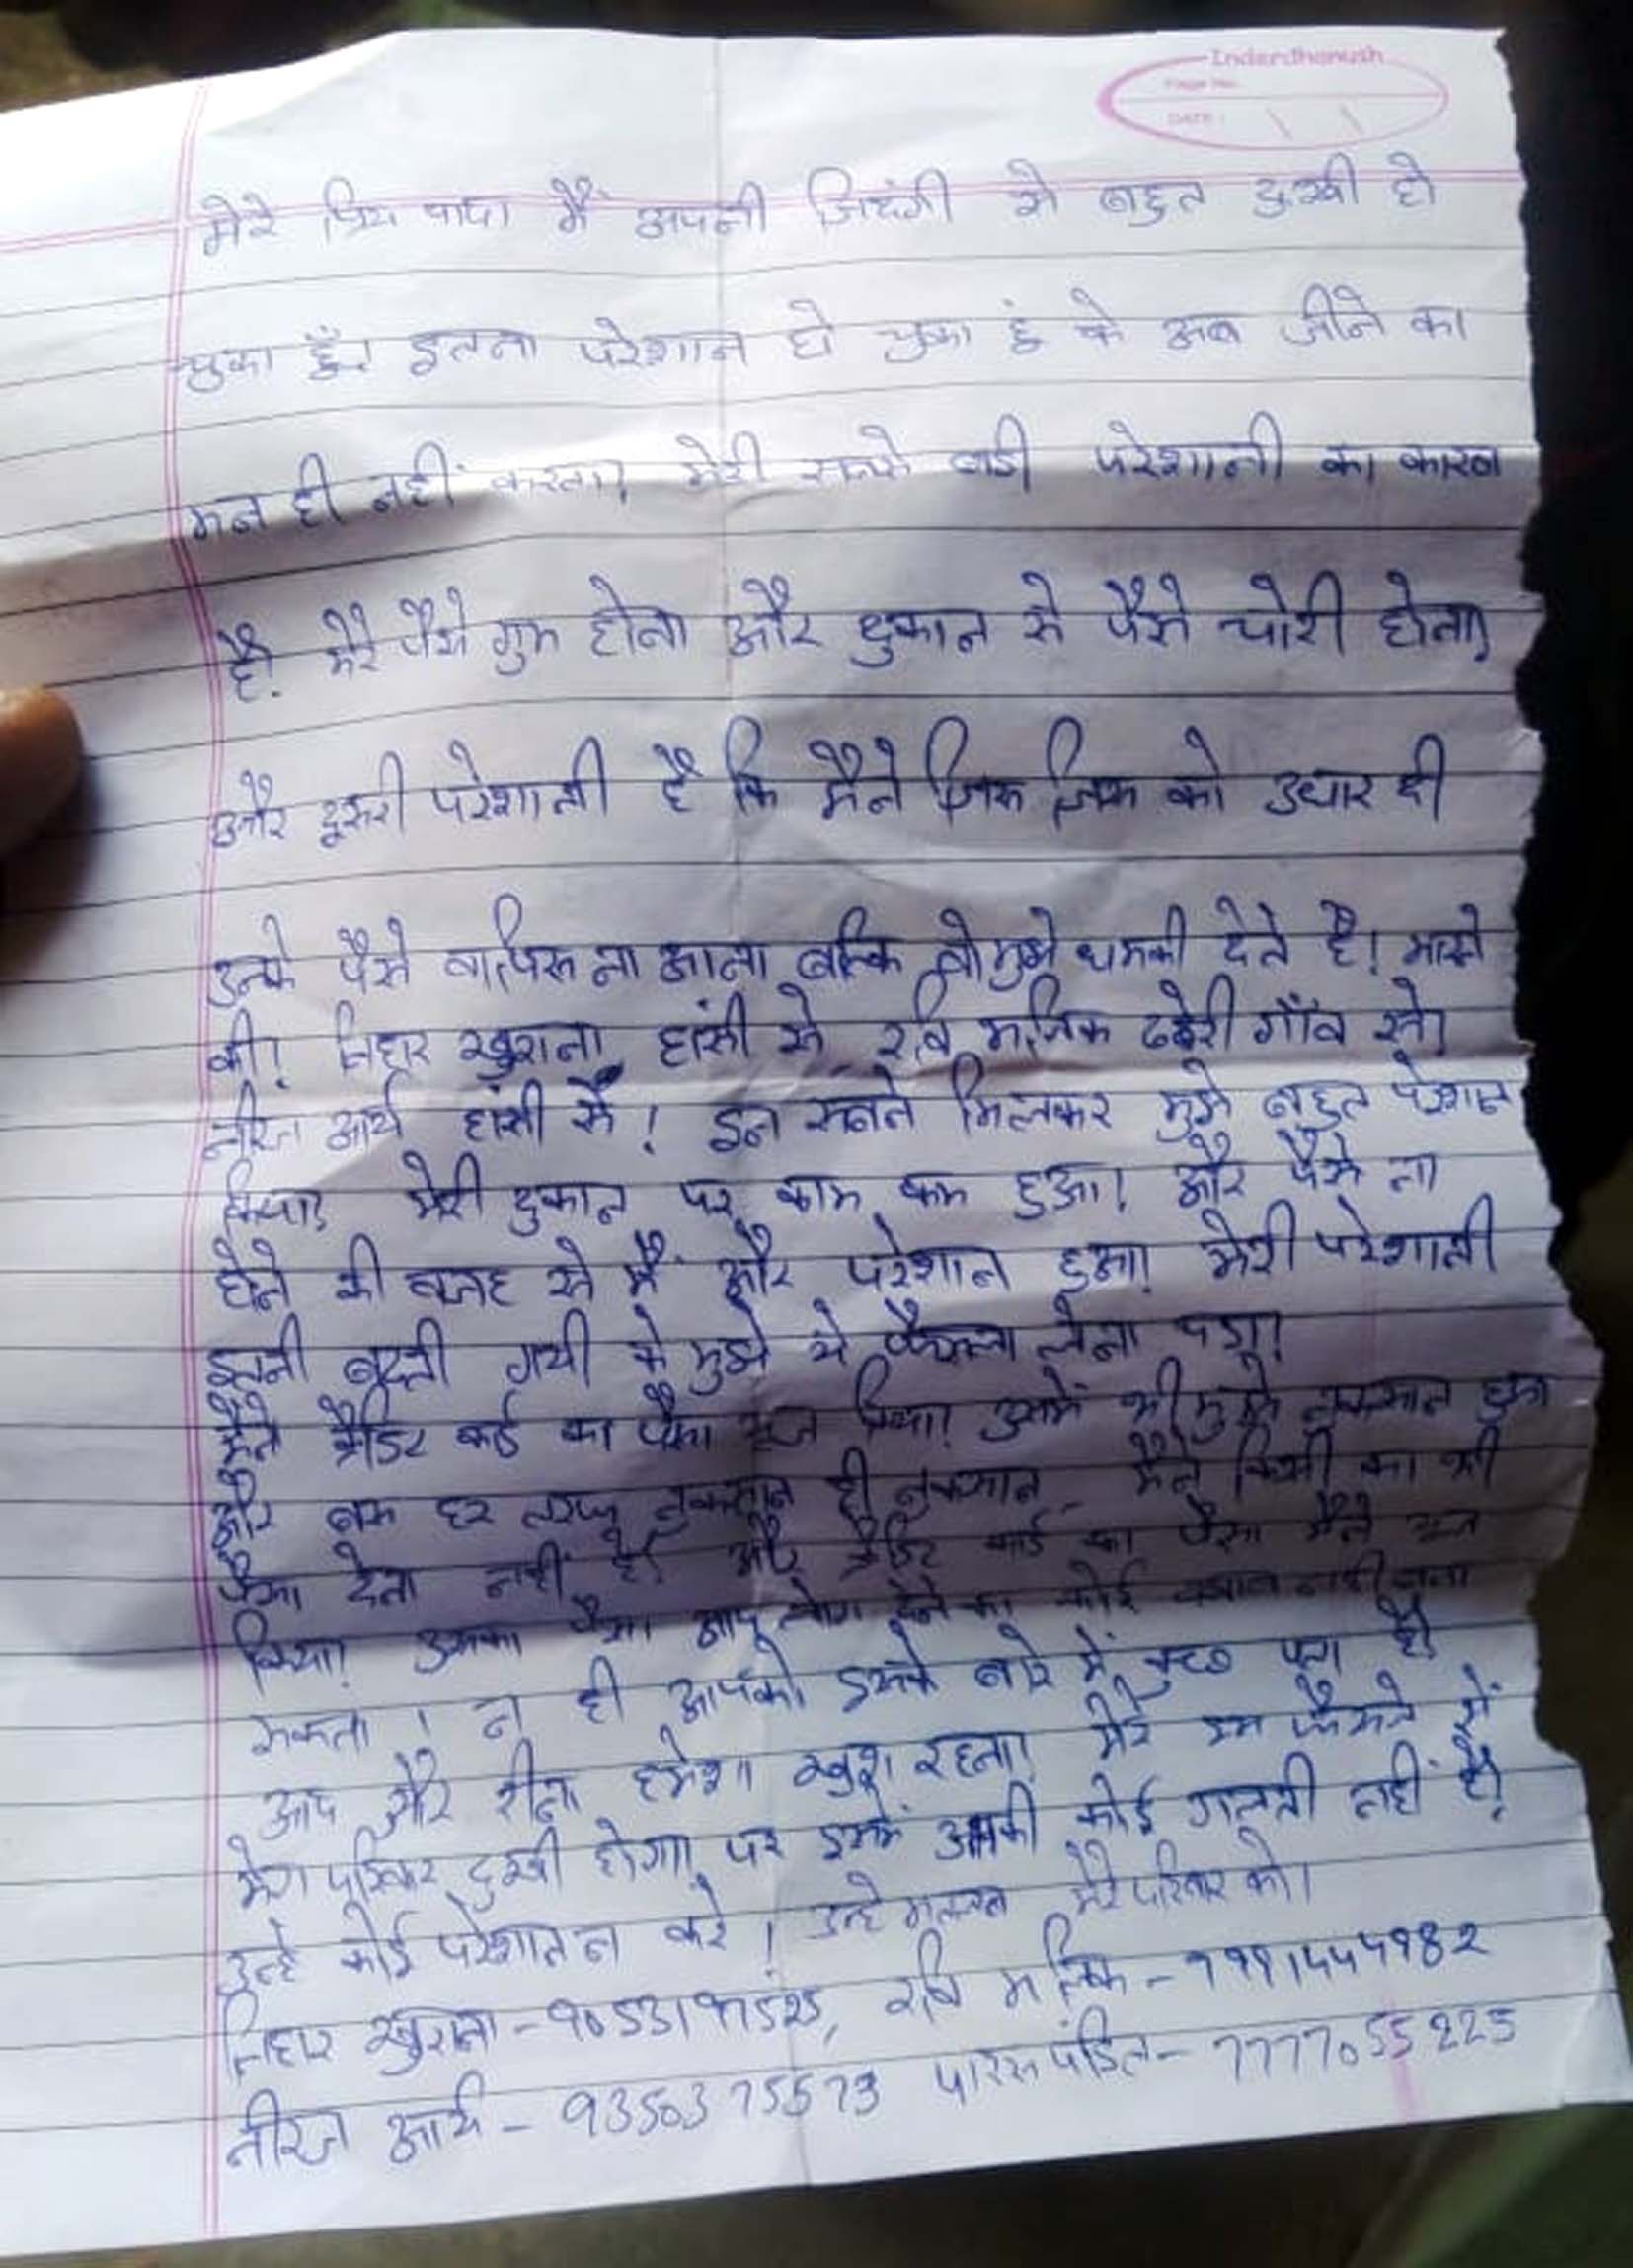 Inderdhanush
Page No.
DATE :
मेरे प्रिय पापा मैं अपनी जिदंगी से बहुत दुःखी हो
चुका हूँ। इतना परेशान हो चुका हूं के अब जीने का
मन ही नहीं करता। मेरी सबसे बडी परेशानी का कारन
है। मेरे पैसे गुम होना और दुकान से पैसे चोरी होना,
और दूसरी परेशानी है कि मैंने जिस जिस को उधार दी
उनके पैसे वापिस ना आना बल्कि वो मुझे धमकी देते है! मारने
की! निहार खुराना हांसी से रवि मलिक ढढेरी गाँव से।
नीरज आर्य हांसी से! इन सबने मिलकर मुझे बहुत परेशान
किया। मेरी दुकान पर काम कम हुआ! और पैसे ना
होने की वजह से मैं और परेशान हुआ! मेरी परेशानी
इतनी बढती गयी के मुझे ये फैसला लेना पडा!
मैंने क्रैडिट कार्ड का पैसा यूज किया! उसमें भी मुझे नुकसान हुआ
और बस हर तरफ नुकसान ही नुकसान मैंने किसी का भी
पैसा देना नहीं है। और क्रैडिट कार्ड का पैसा मैंने यूज
किया! उसका पैसा आप लोग देने का कोई नहीं बना
सकता। न ही आपको इसके बारे में कुछ पता है।
आप और रीना हमेशा खुश रहना! मेरे इस फैसले से
मेरा परिवार दुखी होगा पर इसमें उनकी कोई गलती नहीं है।
उन्हे कोई परेशान न करे! उन्हे मतलब मेरे परिवार को।
निहार खुराना - रवि मलिक - 9991444982
नीरज आर्य - 9350375573 पारस पंडित - 7777055225